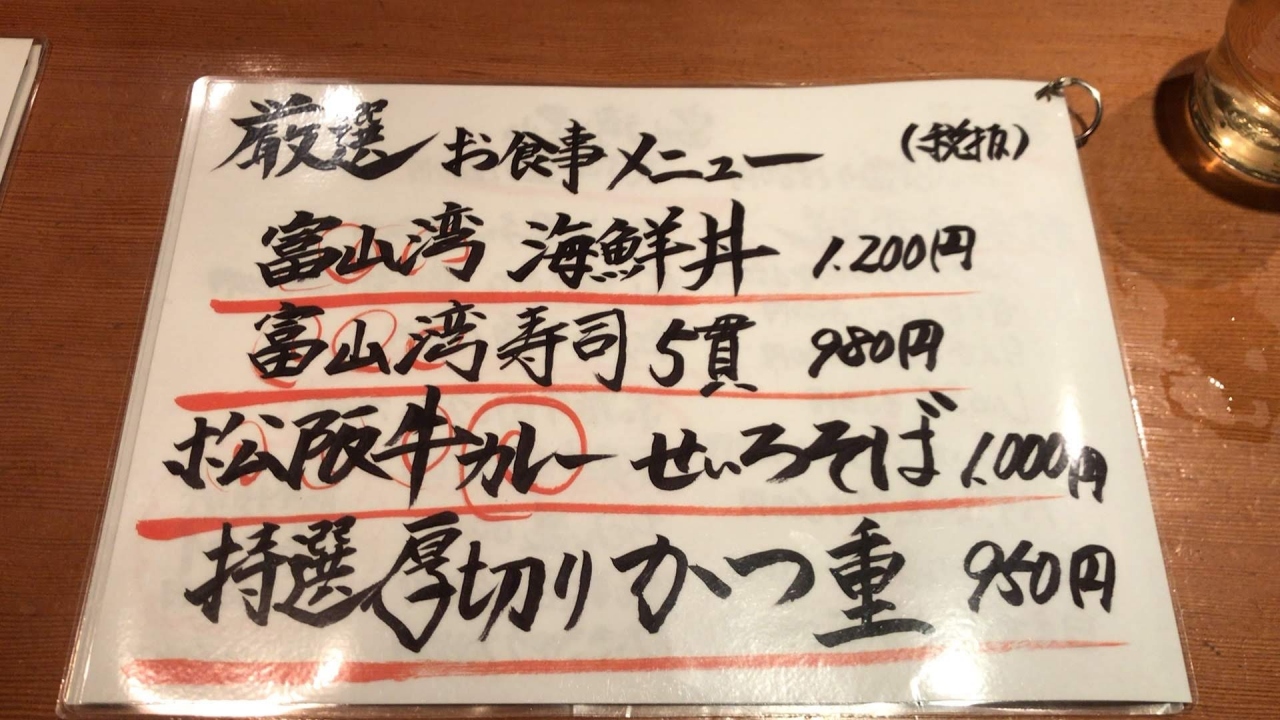 厳選 お食事メニュー (税抜)
富山湾 海鮮丼 1.200円
富山湾寿司 5貫 980円
松阪牛カレー せいろそば 1.000円
特選厚切りかつ重 950円